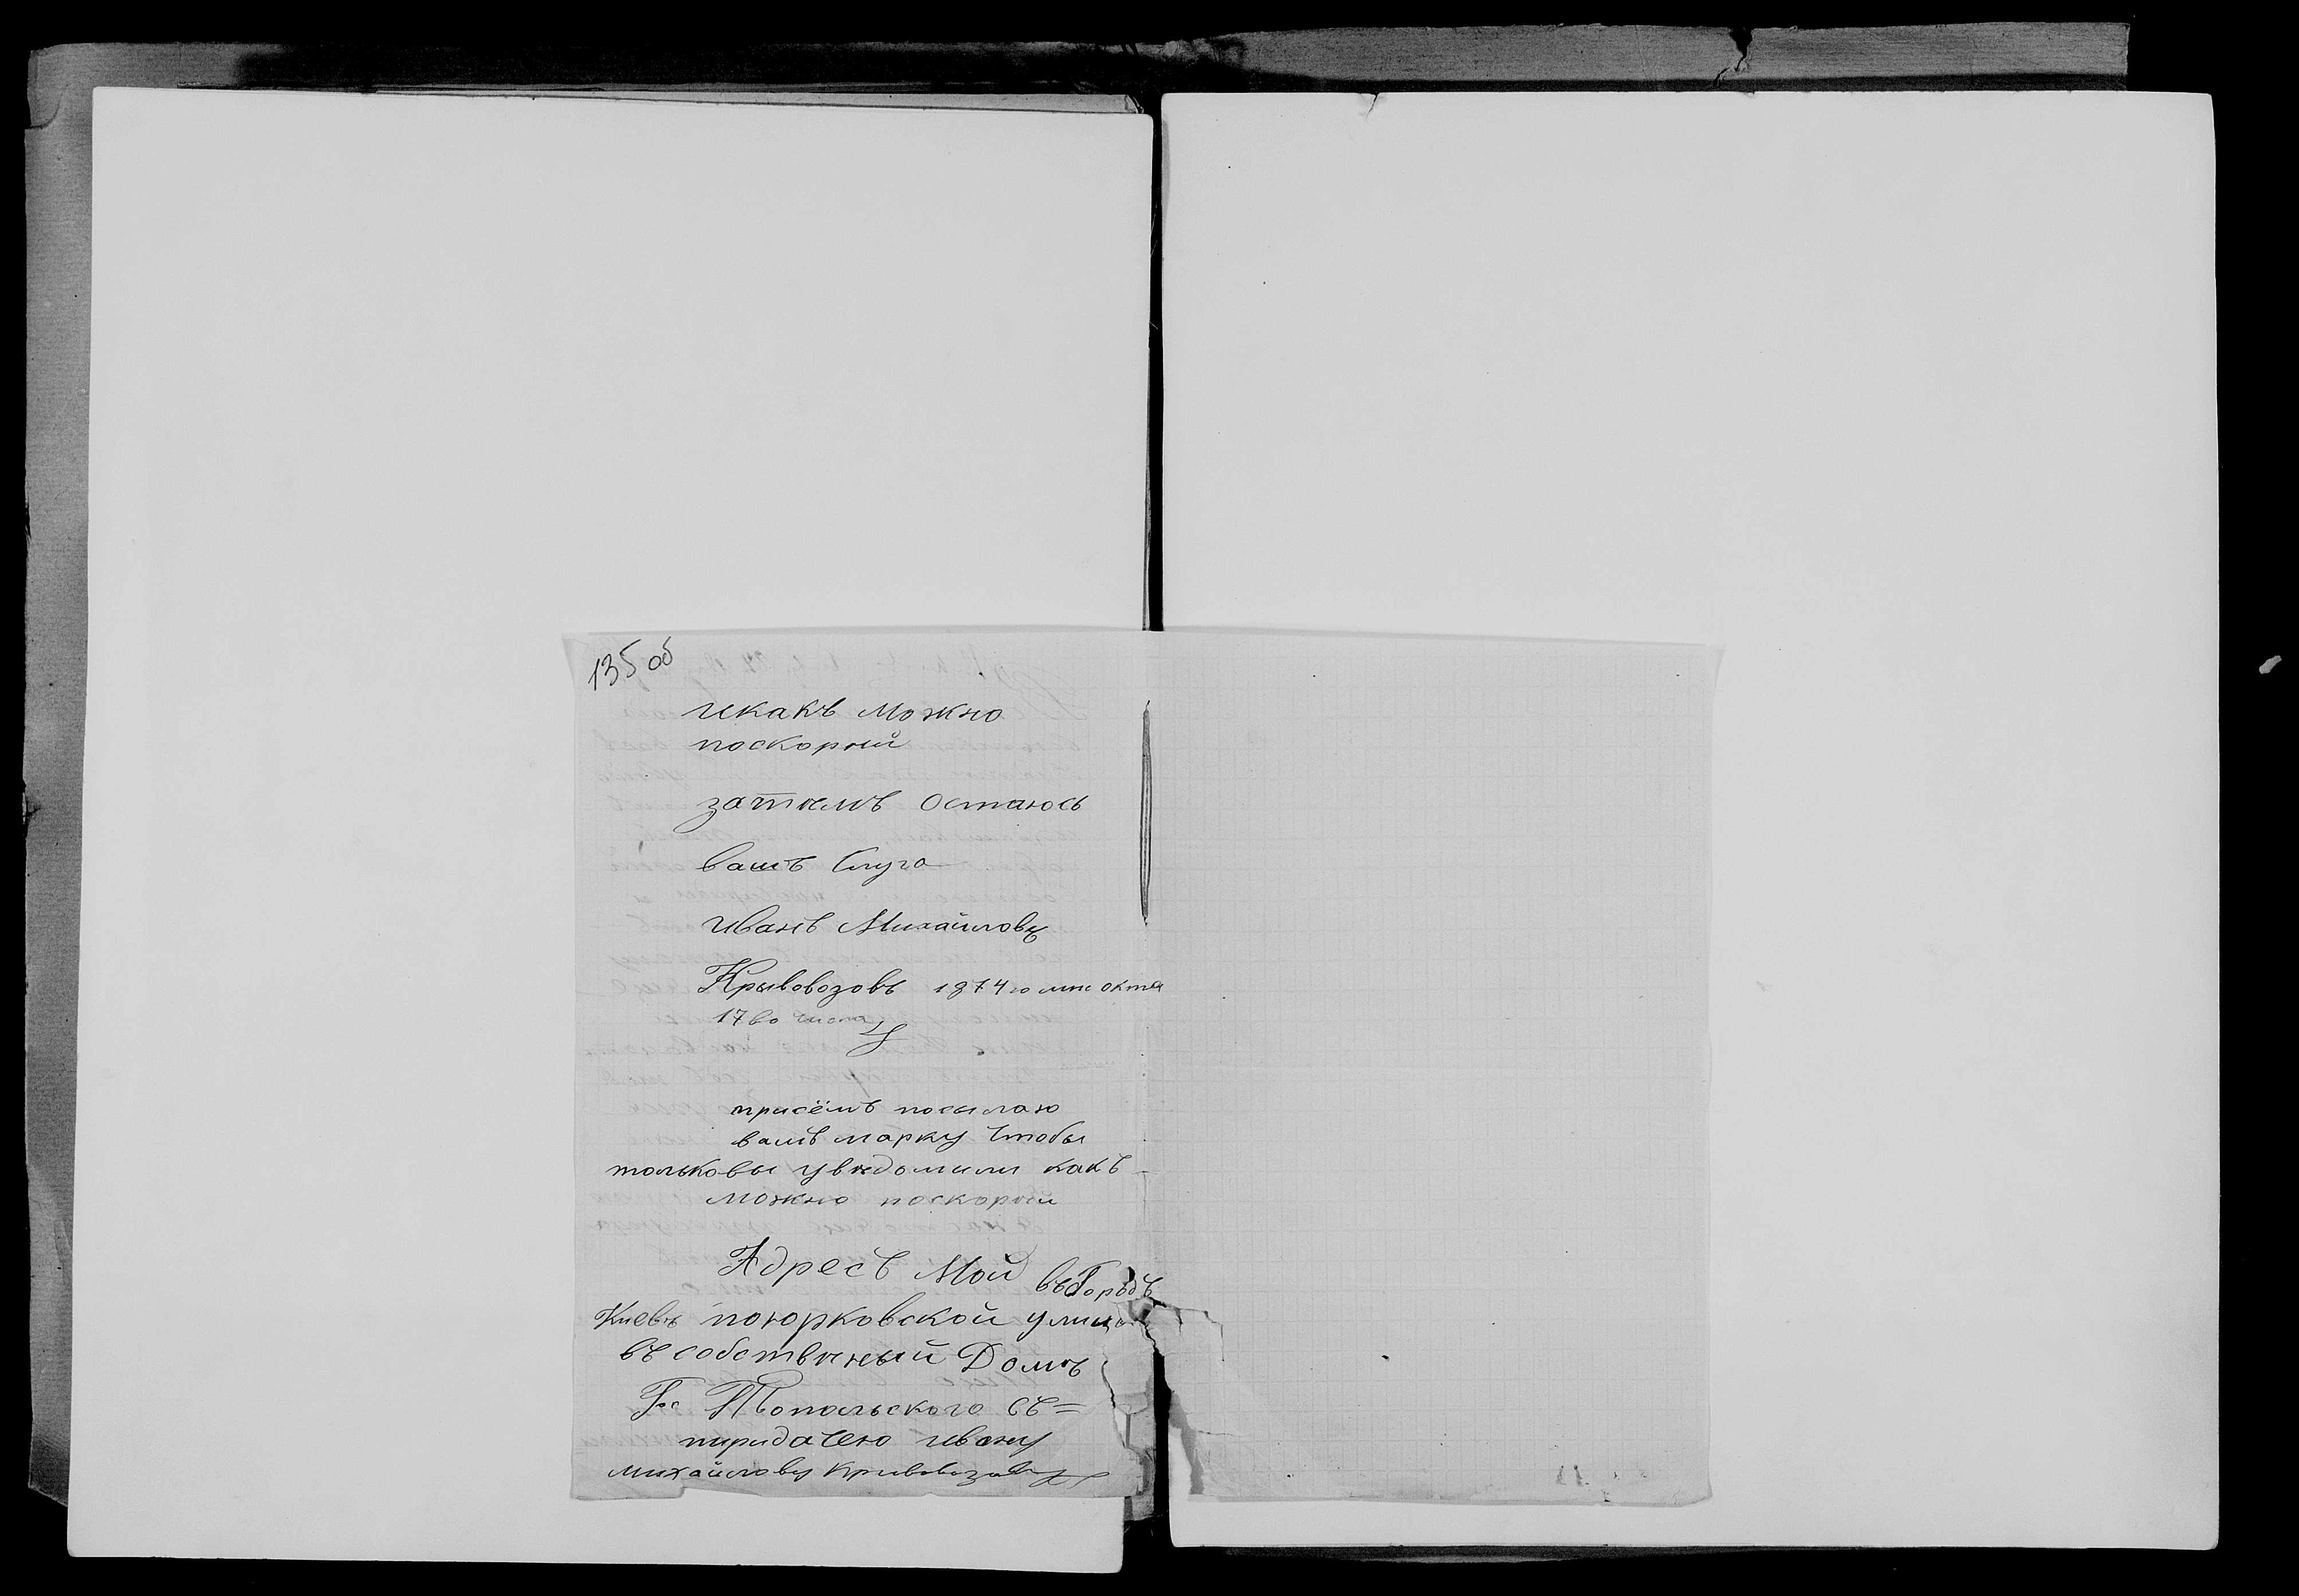 135 об
икакъ можно
поскорѣй
затѣмъ остаюсь
вашъ Слуга
иванъ Михайловъ
Крывовозовъ 1874 го мце октя
17 во числа
присёмъ посылаю
вамъ марку Чтобы
тольковы увѣдомили какъ
можно поскорѣй
Адресъ Мой въ Городѣ
Киевѣ поюрковской улицы
въ собствѣный Домъ
Гос Топальского съ=
пиридачею ивану
михайлову Кривовозову